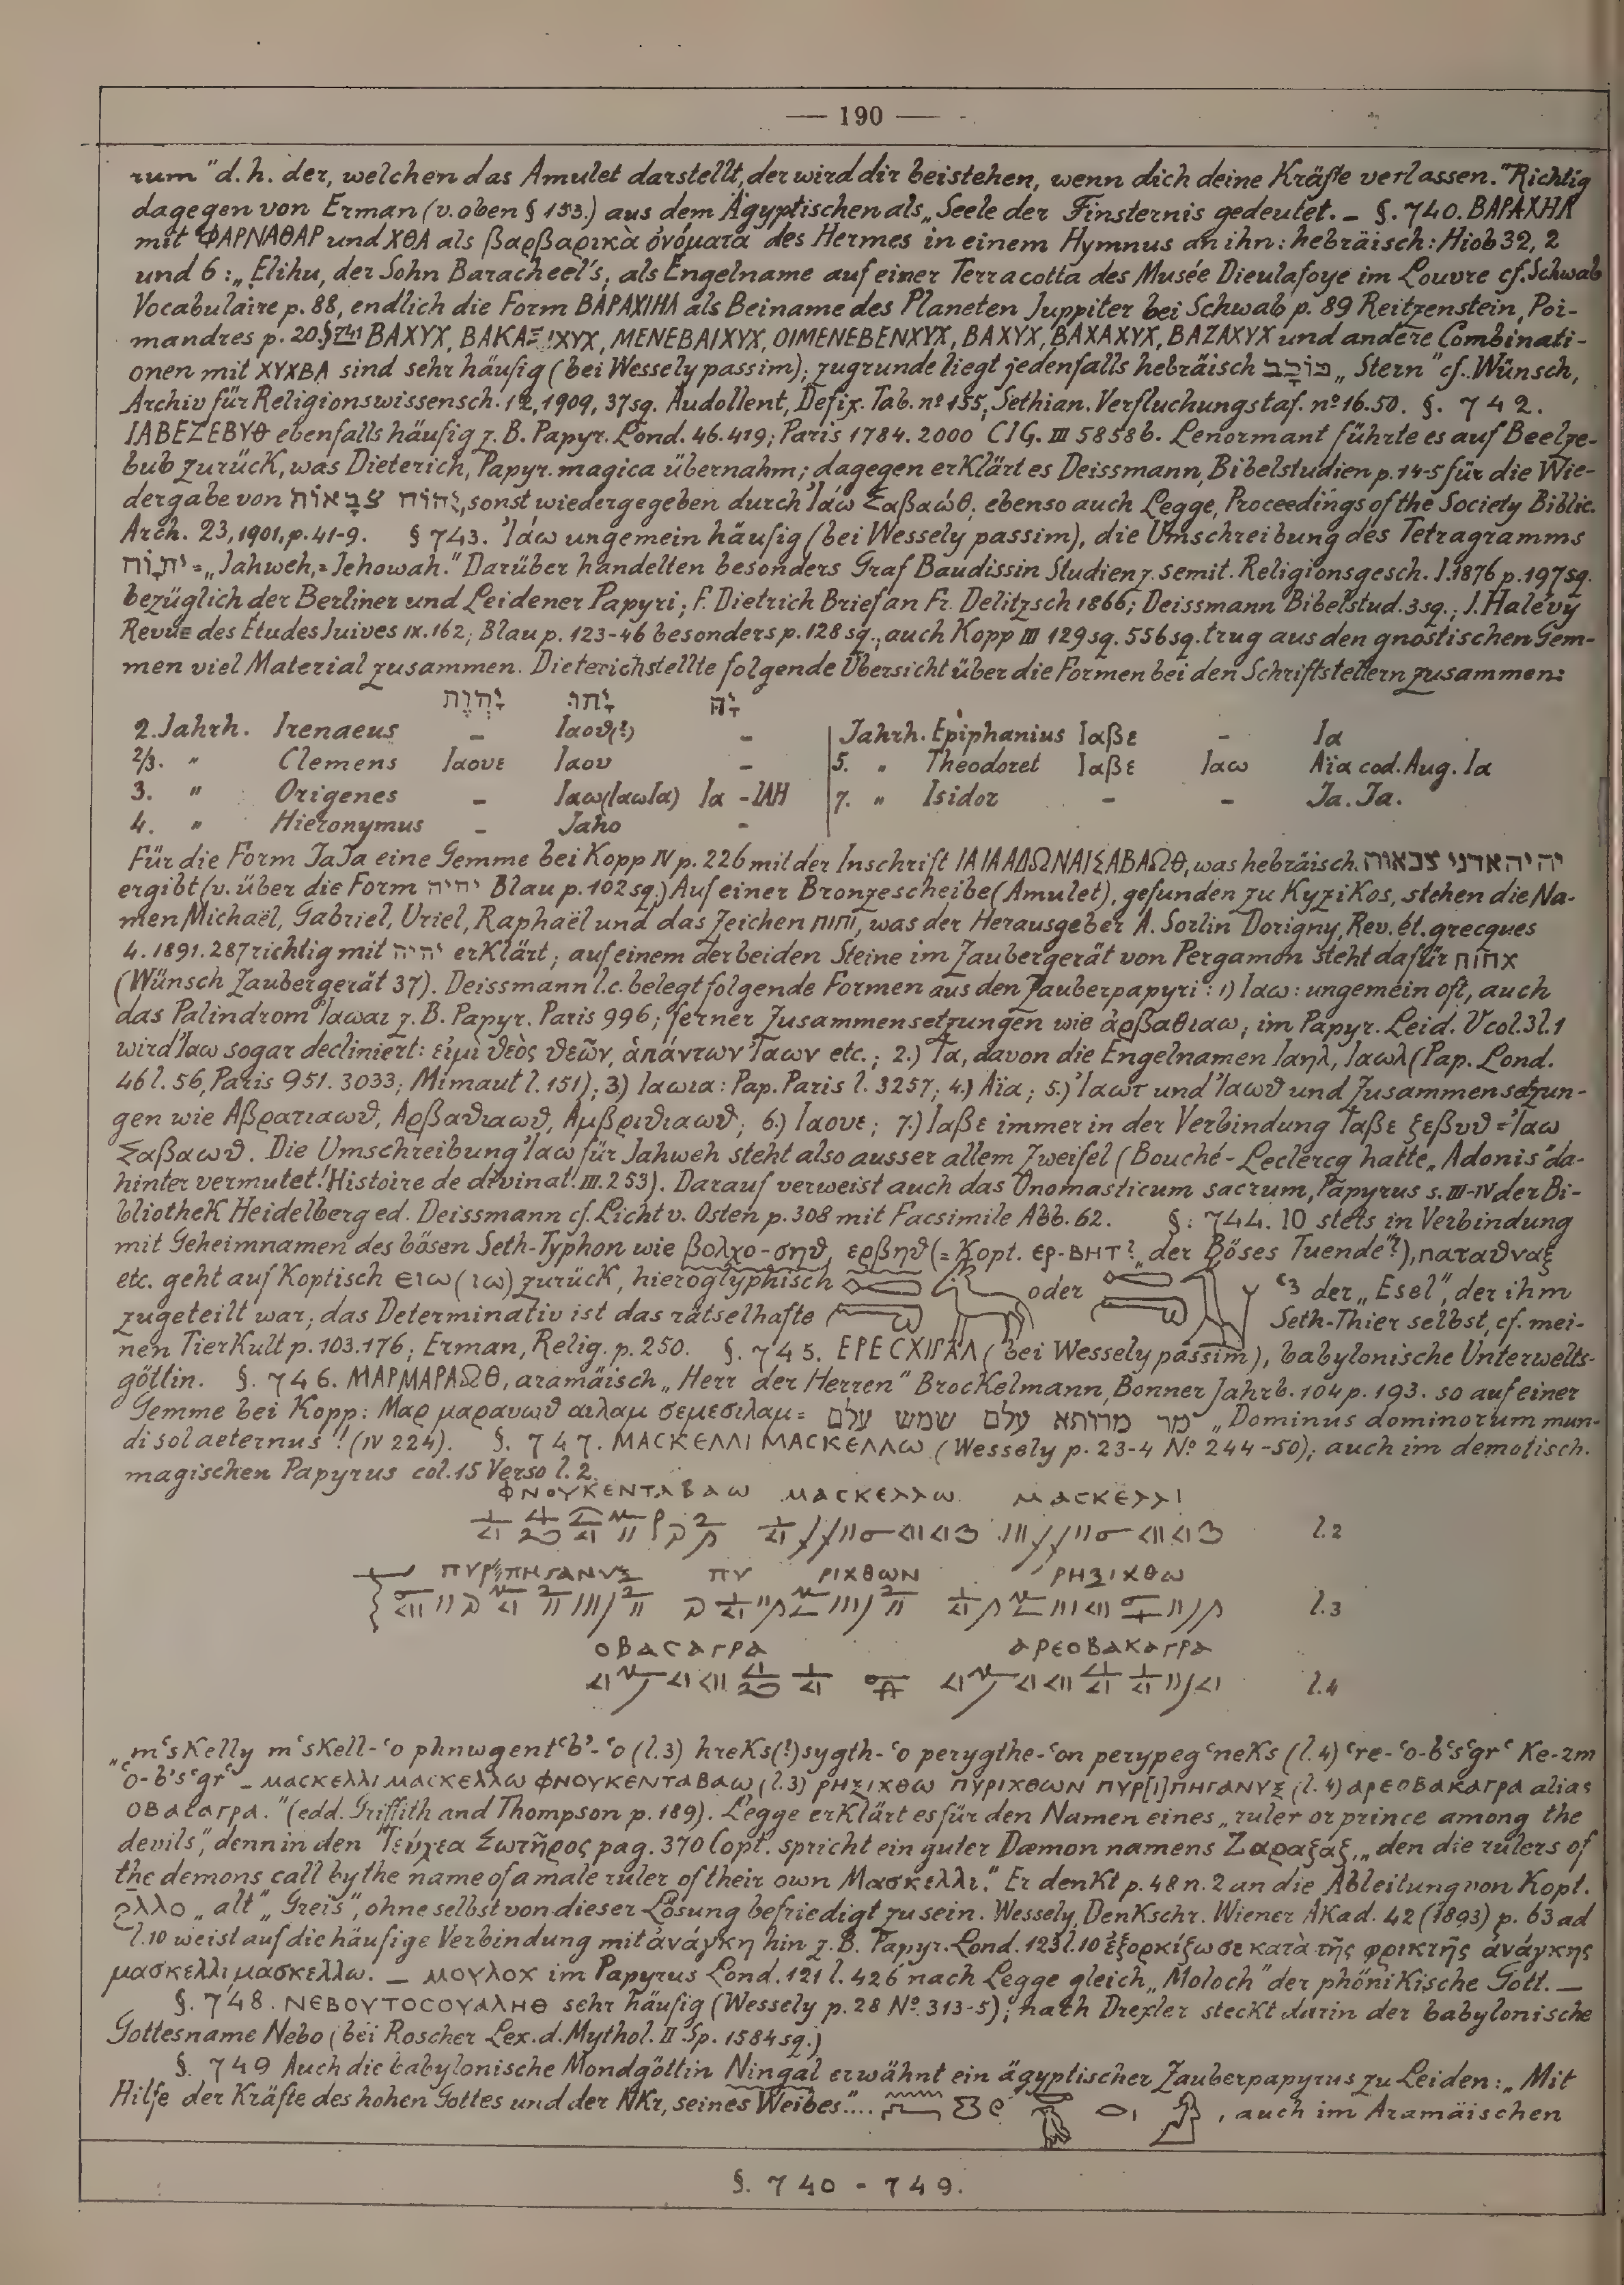 — 190 —
rum" d. h. der, welchen das Amulet darstellt, der wird dir beistehen, wenn dich deine Kräfte verlassen." Richtig
dagegen von Erman (v. oben § 153.) aus dem Ägyptischen als „Seele der Finsternis gedeutet. – §. 740. ΒΑΡΑΧΗΛ
mit ΦΑΡΝΑΘΑΡ und ΧΘΑ als βαρβαρικὰ ὀνόματα des Hermes in einem Hymnus an ihn: hebräisch: Hiob 32, 2
und 6: „Elihu, der Sohn Baracheel's, als Engelname auf einer Terracotta des Musée Dieulafoye im Louvre cf. Schwab
Vocabulaire p. 88, endlich die Form ΒΑΡΑΧΙΗΛ als Beiname des Planeten Juppiter bei Schwab p. 89 Reitzenstein, Poi-
mandres p. 20. § 741 ΒΑΧΥΧ, ΜΕΝΕΒΑΙΧΥΧ, ΟΙΜΕΝΕΒΕΝΧΥΧ, ΒΑΧΥΧ, ΒΑΧΑΧΥΧ, ΒΑΖΑΧΥΧ und andere Combinati-
onen mit ΧΥΧΒΑ sind sehr häufig (bei Wessely passim); zugrunde liegt jedenfalls hebräisch כּוֹכָב „Stern" cf. Wünsch,
Archiv für Religionswissensch. 12, 1909, 37 sq. Audollent, Defix. Tab. nº 155, Sethian. Verfluchungstaf. nº 16. 50. §. 742.
ΙΑΒΕΖΕΒΥΘ ebenfalls häufig z. B. Papyr. Lond. 46. 419; Paris 1784. 2000 CIG. III 5858b. Lenormant führte es auf Beelze-
bub zurück, was Dieterich, Papyr. magica übernahm; dagegen erklärt es Deissmann, Bibelstudien p. 14-5 für die Wie-
dergabe von יְהוֹה צְבָאוֹת, sonst wiedergegeben durch Ἰάω Σαβαώθ, ebenso auch Legge, Proceedings of the Society Biblic.
Arch. 23, 1901, p. 41-9. § 743. Ἰάω ungemein häufig (bei Wessely passim), die Umschreibung des Tetragramms
יהוה = „Jahweh, = Jehowah." Darüber handelten besonders Graf Baudissin Studien z. semit. Religionsgesch. I. 1876 p. 197 sq.
bezüglich der Berliner und Leidener Papyri; F. Dietrich Brief an Fr. Delitzsch 1866; Deissmann Bibelstud. 3 sq.; J. Halévy
Revue des Etudes Juives IX. 162; Blau p. 123-46 besonders p. 128 sq.; auch Kopp III 129 sq. 556 sq. trug aus den gnostischen Gem-
men viel Material zusammen. Dieterich stellte folgende Übersicht über die Formen bei den Schriftstellern zusammen:
יַהְוֶה יָהוּ יָהּ
2. Jahrh. Irenaeus – Ιαοϑ(?) – | Jahrh. Epiphanius Ιαβε – Ια
2/3. „ Clemens Ιαουε Ιαου – | 5. „ Theodoret Ιαβε Ιαω Αϊα cod. Aug. Ια
3. „ Origenes – Ιαω (ΙαωΙα) Ια - ΙΑΗ | 7. „ Isidor – – Ja. Ja.
4. „ Hieronymus – Jaho –
Für die Form JaJa eine Gemme bei Kopp IV p. 226 mit der Inschrift ΙΑΙΑΑΔΩΝΑΙΣΑΒΑΩΘ, was hebräisch. יה יה אדני צבאות
ergibt (v. über die Form יהיה Blau p. 102 sq.) Auf einer Bronzescheibe (Amulet), gefunden zu Kyzikos, stehen die Na-
men Michaël, Gabriel, Uriel, Raphaël und das Zeichen ΠΙΠΙ, was der Herausgeber A. Sorlin Dorigny, Rev. ét. grecques
4. 1891. 287 richtig mit יהיה erklärt; auf einem der beiden Steine im Zaubergerät von Pergamon steht dafür
(Wünsch Zaubergerät 37). Deissmann l. c. belegt folgende Formen aus den Zauberpapyri: 1) Ιαω: ungemein oft, auch
das Palindrom Ἰαωαι z. B. Papyr. Paris 996; ferner Zusammensetzungen wie ἀρβαθιαω, im Papyr. Leid. V col. 3 l. 1
wird Ἰαω sogar decliniert: εἰμὶ ϑεὸς ϑεῶν, ἁπάντων Ἰαων etc.; 2.) Ἰα, davon die Engelnamen Ιαηλ, Ιαωλ (Pap. Lond.
46 l. 56, Paris 951. 3033; Mimaut l. 151); 3) Ιαωια: Pap. Paris l. 3257; 4.) Αϊα; 5.) Ἰαωτ und Ἰαωϑ und Zusammensetzun-
gen wie Αβρατιαωϑ, Αρβαϑιαωϑ, Αμβριϑιαωϑ; 6.) Ιαουε; 7.) Ιαβε immer in der Verbindung Ιαβε ζεβυϑ = Ἰαω
Σαβαωϑ. Die Umschreibung Ἰαω für Jahweh steht also ausser allem Zweifel (Bouché-Leclercq hatte „Adonis" da-
hinter vermutet! Histoire de divinat. III. 253). Darauf verweist auch das Onomasticum sacrum, Papyrus s. III-IV der Bi-
bliothek Heidelberg ed. Deissmann cf. Licht v. Osten p. 308 mit Facsimile Abb. 62. §. 744. ΙΟ stets in Verbindung
mit Geheimnamen des bösen Seth-Typhon wie βολχο-σηϑ, ερβηϑ (= Kopt. ⲉⲣ-ⲃⲏⲧ? „der Böses Tuende"?), παταϑναξ
etc. geht auf Koptisch ⲉⲓⲱ (ⲓⲱ) zurück, hieroglyphisch oder ꜥꜣ der „Esel", der ihm
zugeteilt war; das Determinativ ist das rätselhafte Seth-Thier selbst, cf. mei-
nen Tierkult p. 103. 176; Erman, Relig. p. 250. §. 745. ΕΡΕCΧΙΓΑΛ (bei Wessely passim), babylonische Unterwelts-
göttin. §. 746. ΜΑΡΜΑΡΑΩΘ, aramäisch „Herr der Herren" Brockelmann, Bonner Jahrb. 104 p. 193. so auf einer
Gemme bei Kopp: Μαρ μαραυωϑ αιλαμ σεμεσιλαμ = מר מרותא עלם שמש עלם „Dominus dominorum mun-
di sol aeternus"! (IV 224). §. 747. ΜΑCΚΕΛΛΙ ΜΑCΚΕΛΛΩ (Wessely p. 23-4 Nº 244-50); auch im demotisch.
magischen Papyrus col. 15 Verso l. 2.
ΦΝΟΥΚΕΝΤΑΒΑΩ ΜΑCΚΕΛΛΩ ΜΑCΚΕΛΛΙ
l. 2
ΠΥΡΙΠΗΓΑΝΥΞ ΠΥ ΡΙΧΘΩΝ ΡΗΞΙΧΘΩ
l. 3
ΟΒΑCΑΓΡΑ ΑΡΕΟΒΑΚΑΓΡΑ
l. 4
„mꜥskelly mꜥskell-ꜥo phnwgentꜥbꜣ-ꜥo (l. 3) hreks(!)sygth-ꜥo perygthe-ꜥon perypegꜥneks (l. 4) ꜥre-ꜥo-bꜥsꜥgrꜥ ke-rm
ꜥo-bꜣsꜥgrꜥ – ⲙⲁⲥⲕⲉⲗⲗⲓ ⲙⲁⲥⲕⲉⲗⲗⲱ ⲫⲛⲟⲩⲕⲉⲛⲧⲁⲃⲁⲱ (l. 3) ⲣⲏⲝⲓⲭⲑⲱ ⲡⲩⲣⲓⲭⲑⲱⲛ ⲡⲩⲣ[ⲓ]ⲡⲏⲅⲁⲛⲩⲝ (l. 4) ⲁⲣⲉⲟⲃⲁⲕⲁⲅⲣⲁ alias
ⲟⲃⲁⲥⲁⲅⲣⲁ." (edd. Griffith and Thompson p. 189). Legge erklärt es für den Namen eines „ruler or prince among the
devils", denn in den Τεύχεα Σωτῆρος pag. 370 Copt. spricht ein guter Dæmon namens Ζαραξάξ, „den die rulers of
the demons call by the name of a male ruler of their own Μασκελλι." Er denkt p. 48 n. 2 an die Ableitung von Kopt.
ϩⲗⲗⲟ „alt" „Greis", ohne selbst von dieser Lösung befriedigt zu sein. Wessely, Denkschr. Wiener Akad. 42 (1893) p. 63 ad
l. 10 weist auf die häufige Verbindung mit ἀνάγκη hin z. B. Papyr. Lond. 123 l. 10 ἐξορκίζω σε κατὰ τῆς φρικτῆς ἀνάγκης
μασκελλι μασκελλω. – ⲙⲟⲩⲗⲟⲭ im Papyrus Lond. 121 l. 426 nach Legge gleich „Moloch" der phönikische Gott. —
§. 748. ΝΕΒΟΥΤΟCΟΥΑΛΗΘ sehr häufig (Wessely p. 28 Nº 313-5); nach Drexler steckt darin der babylonische
Gottesname Nebo (bei Roscher Lex. d. Mythol. II Sp. 1584 sq.)
§. 749 Auch die babylonische Mondgöttin Ningal erwähnt ein ägyptischer Zauberpapyrus zu Leiden: „Mit
Hilfe der Kräfte des hohen Gottes und der NKr, seines Weibes".... , auch im Aramäischen
§. 740 - 749.